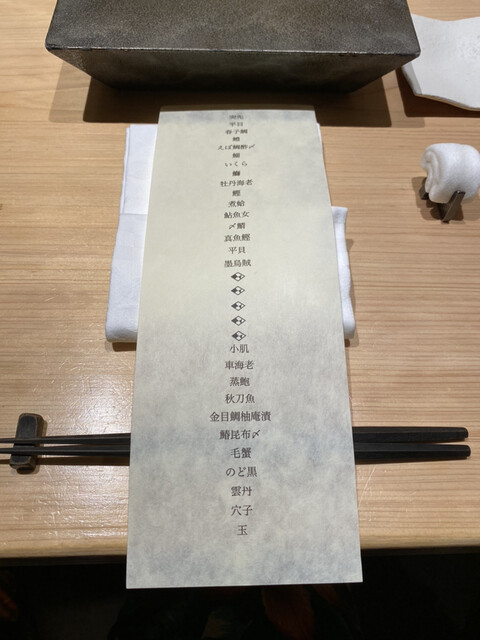 平目
春子鯛
えぼ鯛酢〆
いくら
鰤
牡丹海老
鰹
煮蛤
鮎魚女
〆鯖
真魚鰹
平貝
墨烏賊
小肌
車海老
蒸鮑
秋刀魚
金目鯛柚庵漬
鰆昆布〆
毛蟹
のど黒
雲丹
穴子
玉